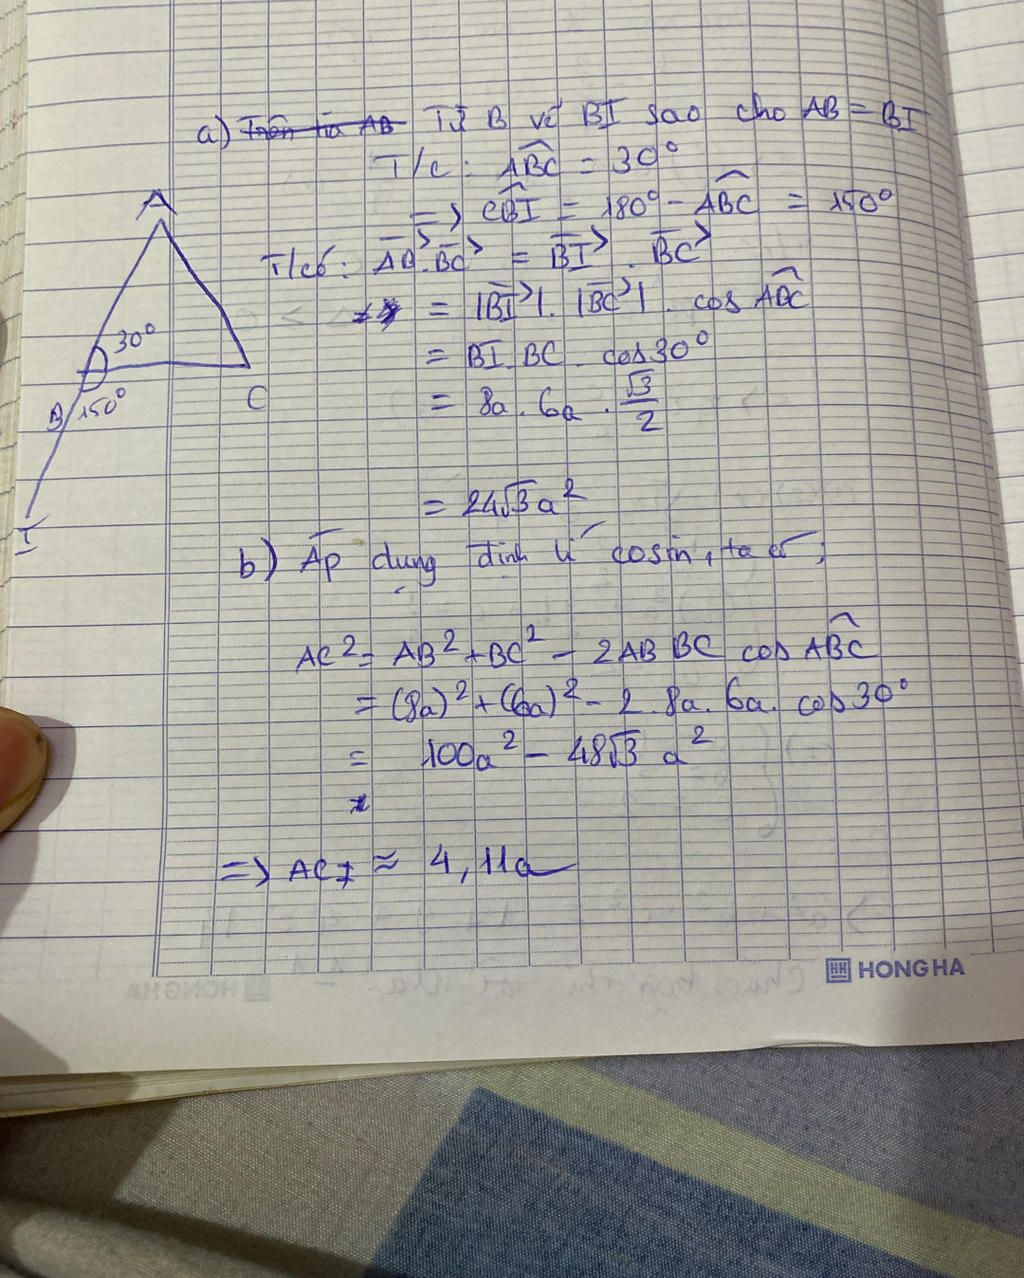 a) Trên tia AB Từ B vẽ BI sao cho AB = BI
T/c: ABC = 30°
=> CBI = 180° - ABC = 150°
T/có: AB. BC = BI . BC
= |BI|. |BC|. cos ABC
= BI. BC. cos 30°
= 8a. 6a. √3/2
= 24√3a²
b) Áp dụng định lí cosin, ta có;
AC² = AB² + BC² - 2AB BC cos ABC
= (8a)² + (6a)² - 2. 8a. 6a. cos 30°
= 100a² - 48√3 a²
=> AC ≈ 4,11a
A
30°
B 150°
C
I
HH HONG HA